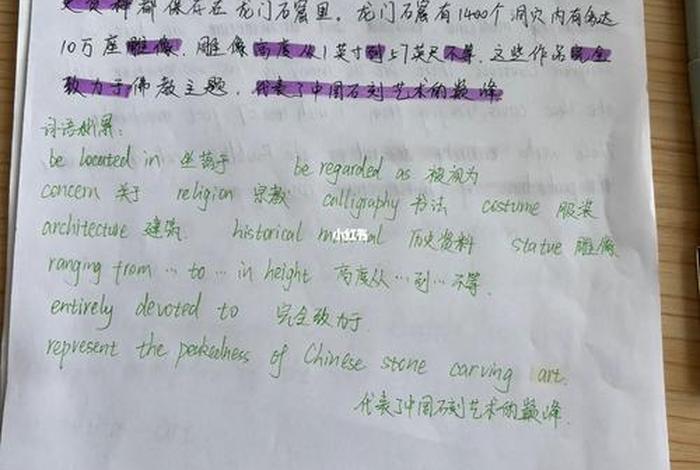 史资料都保存在龙门石窟里。龙门石窟有1400个洞穴内有多达
10万座雕像,雕像高度从1英寸到57英尺不等,这些作品完全
致力于佛教主题,代表了中国石刻艺术的巅峰。
词语拓展:
be located in 坐落于 be regarded as 被视为
concern 关于 religion 宗教 calligraphy 书法 costume 服装
architecture 建筑 historical 历史资料 statue 雕像
小红书
ranging from … to … in height 高度从…到…不等.
entirely devoted to 完全致力于.
represent the peakedness of Chinese stone carving art.
代表了中国石刻艺术的巅峰.